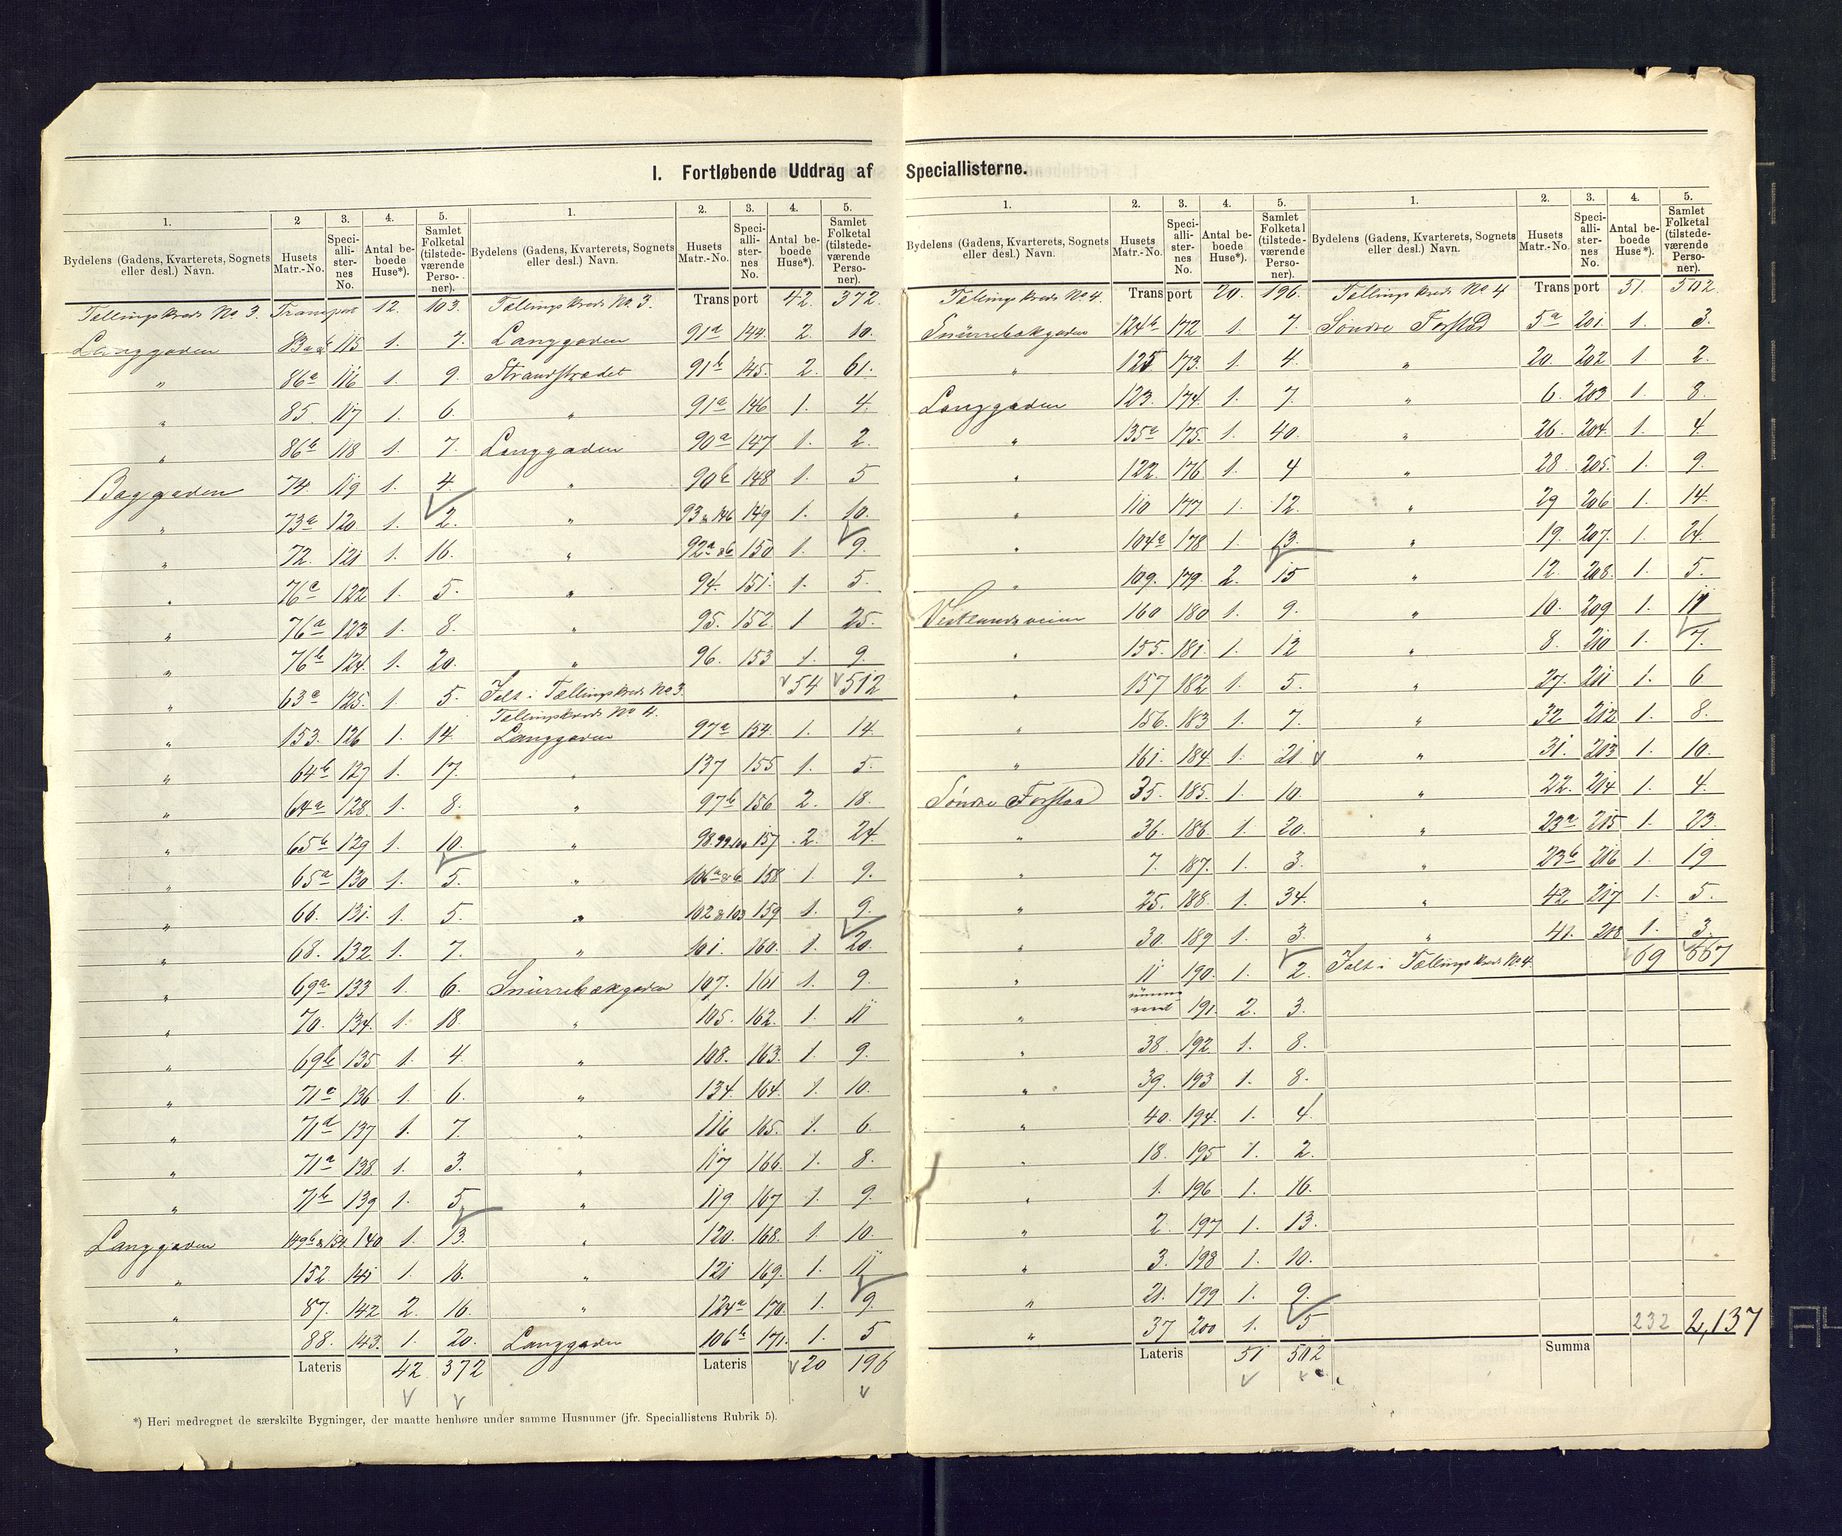 I. Fortløbende Uddrag af Speciallisterne.
1. 2 3. 4. 5.
Bydelens (Gadens, Kvarterets, Sognets eller desl.) Navn. Husets Matr.-No. Speciallisternes No. Antal beboede Huse*). Samlet Folketal (tilstedeværende Personer).
Tellingskreds No 3. Transport 12. 103.
Langgaden 83a&b 115 1. 7.
" 86a 116 1. 9.
" 85. 117 1. 6.
" 86b 118 1. 7.
Baggaden 74. 119 1. 4.
" 73a 120 1. 2.
" 72. 121 1. 16.
" 76c 122 1. 5.
" 76a 123 1. 8.
" 76b 124. 1. 20.
" 63a 125. 1. 5.
" 153. 126 1. 14.
" 64b 127 1. 17.
" 64a 128. 1. 8.
" 65b 129 1. 10.
" 65a 130 1. 5.
" 66. 131. 1. 5.
" 68. 132 1. 7.
" 69a 133 1. 6.
" 70. 134. 1. 18.
" 69b 135 1. 4.
" 71c 136 1. 6.
" 71d 137 1. 7.
" 71a 138 1. 3.
" 71b 139 1. 5.
Langgaden 149b & 154 140 1. 13.
" 152 141 1. 16.
" 87. 142 2. 16.
" 88. 143. 1. 20.
Lateris 42 372
1. 2. 3. 4. 5.
Bydelens (Gadens, Kvarterets, Sognets eller desl.) Navn. Husets Matr.-No. Speciallisternes No. Antal beboede Huse*). Samlet Folketal (tilstedeværende Personer).
Tellingskreds No 3. Transport 42. 372.
Langgaden 91a 144. 2. 10.
Strandstrædet 91b 145. 2. 61.
" 91a 146 1. 4.
Langgaden 90a 147 1. 2.
" 90b 148 1. 5
" 93 & 146 149 1. 10.
" 92a&b 150 1. 9.
" 94. 151. 1. 5.
" 95. 152. 1 25.
" 96. 153 1. 9.
Ialt i Tællingskreds No 3. 54 512
Tellingskreds No 4.
Langgaden 97a 154. 1. 14.
" 137 155 1. 5.
" 97b 156 2. 18.
" 98.99.100 157. 2. 24.
" 106a&b 158 1 9.
" 102 & 103 159 1. 9.
" 101. 160. 1. 20.
Snurrebakgaden 107. 161 1. 9.
" 105. 162. 1. 11
" 108. 163. 1. 9.
" 134. 164. 1. 10.
" 116 165. 1. 6.
" 117 166. 1. 8.
" 119. 167 1. 9.
" 120. 168. 1. 10.
" 121 169. 1. 11
" 124a 170. 1. 9.
Langgaden 106b 171. 1. 5
Lateris 20 196
*) Heri medregnet de særskilte Bygninger, der maatte henhøre under samme Husnumer (jfr. Speciallistens Rubrik 5).
1. 2. 3. 4. 5.
Bydelens (Gadens, Kvarterets, Sognets eller desl.) Navn. Husets Matr.-No. Speciallisternes No. Antal beboede Huse*). Samlet Folketal (tilstedeværende Personer).
Tellingskreds No 4. Transport 20. 196.
Snurrebakgaden 124b 172 1. 7.
" 125 173. 1. 4.
Langgaden 123. 174. 1. 7.
" 135a 175. 1. 40.
" 122. 176 1. 4
" 110 177. 1. 12.
" 104a 178 1. 13.
" 109. 179. 2. 15
Vestlandsveien 160 180 1. 9.
" 155. 181. 1. 12
" 157 182 1. 5.
" 156. 183 1. 7.
" 161. 184. 1. 21
Søndre Forstad 35. 185. 1. 10.
" 36. 186. 1. 20.
" 7. 187. 1. 3.
" 25. 188. 1. 34.
" 30. 189 1. 3.
" 11 190. 1. 2.
" 191. 2. 3.
" 38. 192 1. 8.
" 39. 193 1. 8.
" 40. 194. 1. 4.
" 18. 195 1. 2.
" 1. 196 1. 16.
" 2. 197 1. 13.
" 3. 198 1. 10.
" 21. 199 1. 9.
" 37 200 1. 5.
Lateris 51 502
1. 2. 3. 4. 5.
Bydelens (Gadens, Kvarterets, Sognets eller desl.) Navn. Husets Matr.-No. Speciallisternes No. Antal beboede Huse*). Samlet Folketal (tilstedeværende Personer).
Tellingskreds No 4 Transport 51. 502.
Søndre Forstad 5a 201. 1. 3.
" 20. 202 1. 2.
" 6. 203 1. 8.
" 26. 204. 1. 4.
" 28. 205. 1. 9.
" 29 206 1. 14.
" 19. 207. 1. 24.
" 12. 208. 1. 5.
" 10. 209 1. 11
" 8. 210 1. 7.
" 27. 211 1. 6
" 32. 212 1. 8.
" 31. 213 1. 10.
" 22. 214 1. 4
" 23a 215 1. 23.
" 23b 216 1. 19
" 42. 217 1. 5.
" 41. 218 1. 3.
Ialt i Tællingskreds No 4. 69 667
232 2,137
Summa